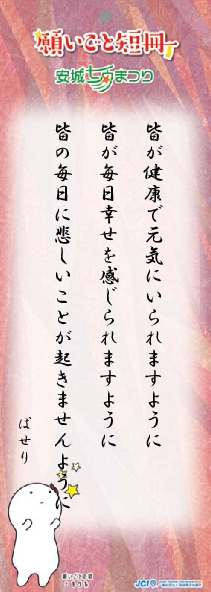 願いごと短冊
安城七夕まつり
皆が健康で元気にいられますように
皆が毎日幸せを感じられますように
皆の毎日に悲しいことが起きませんように
ぱせり
願いごと短冊
JCI